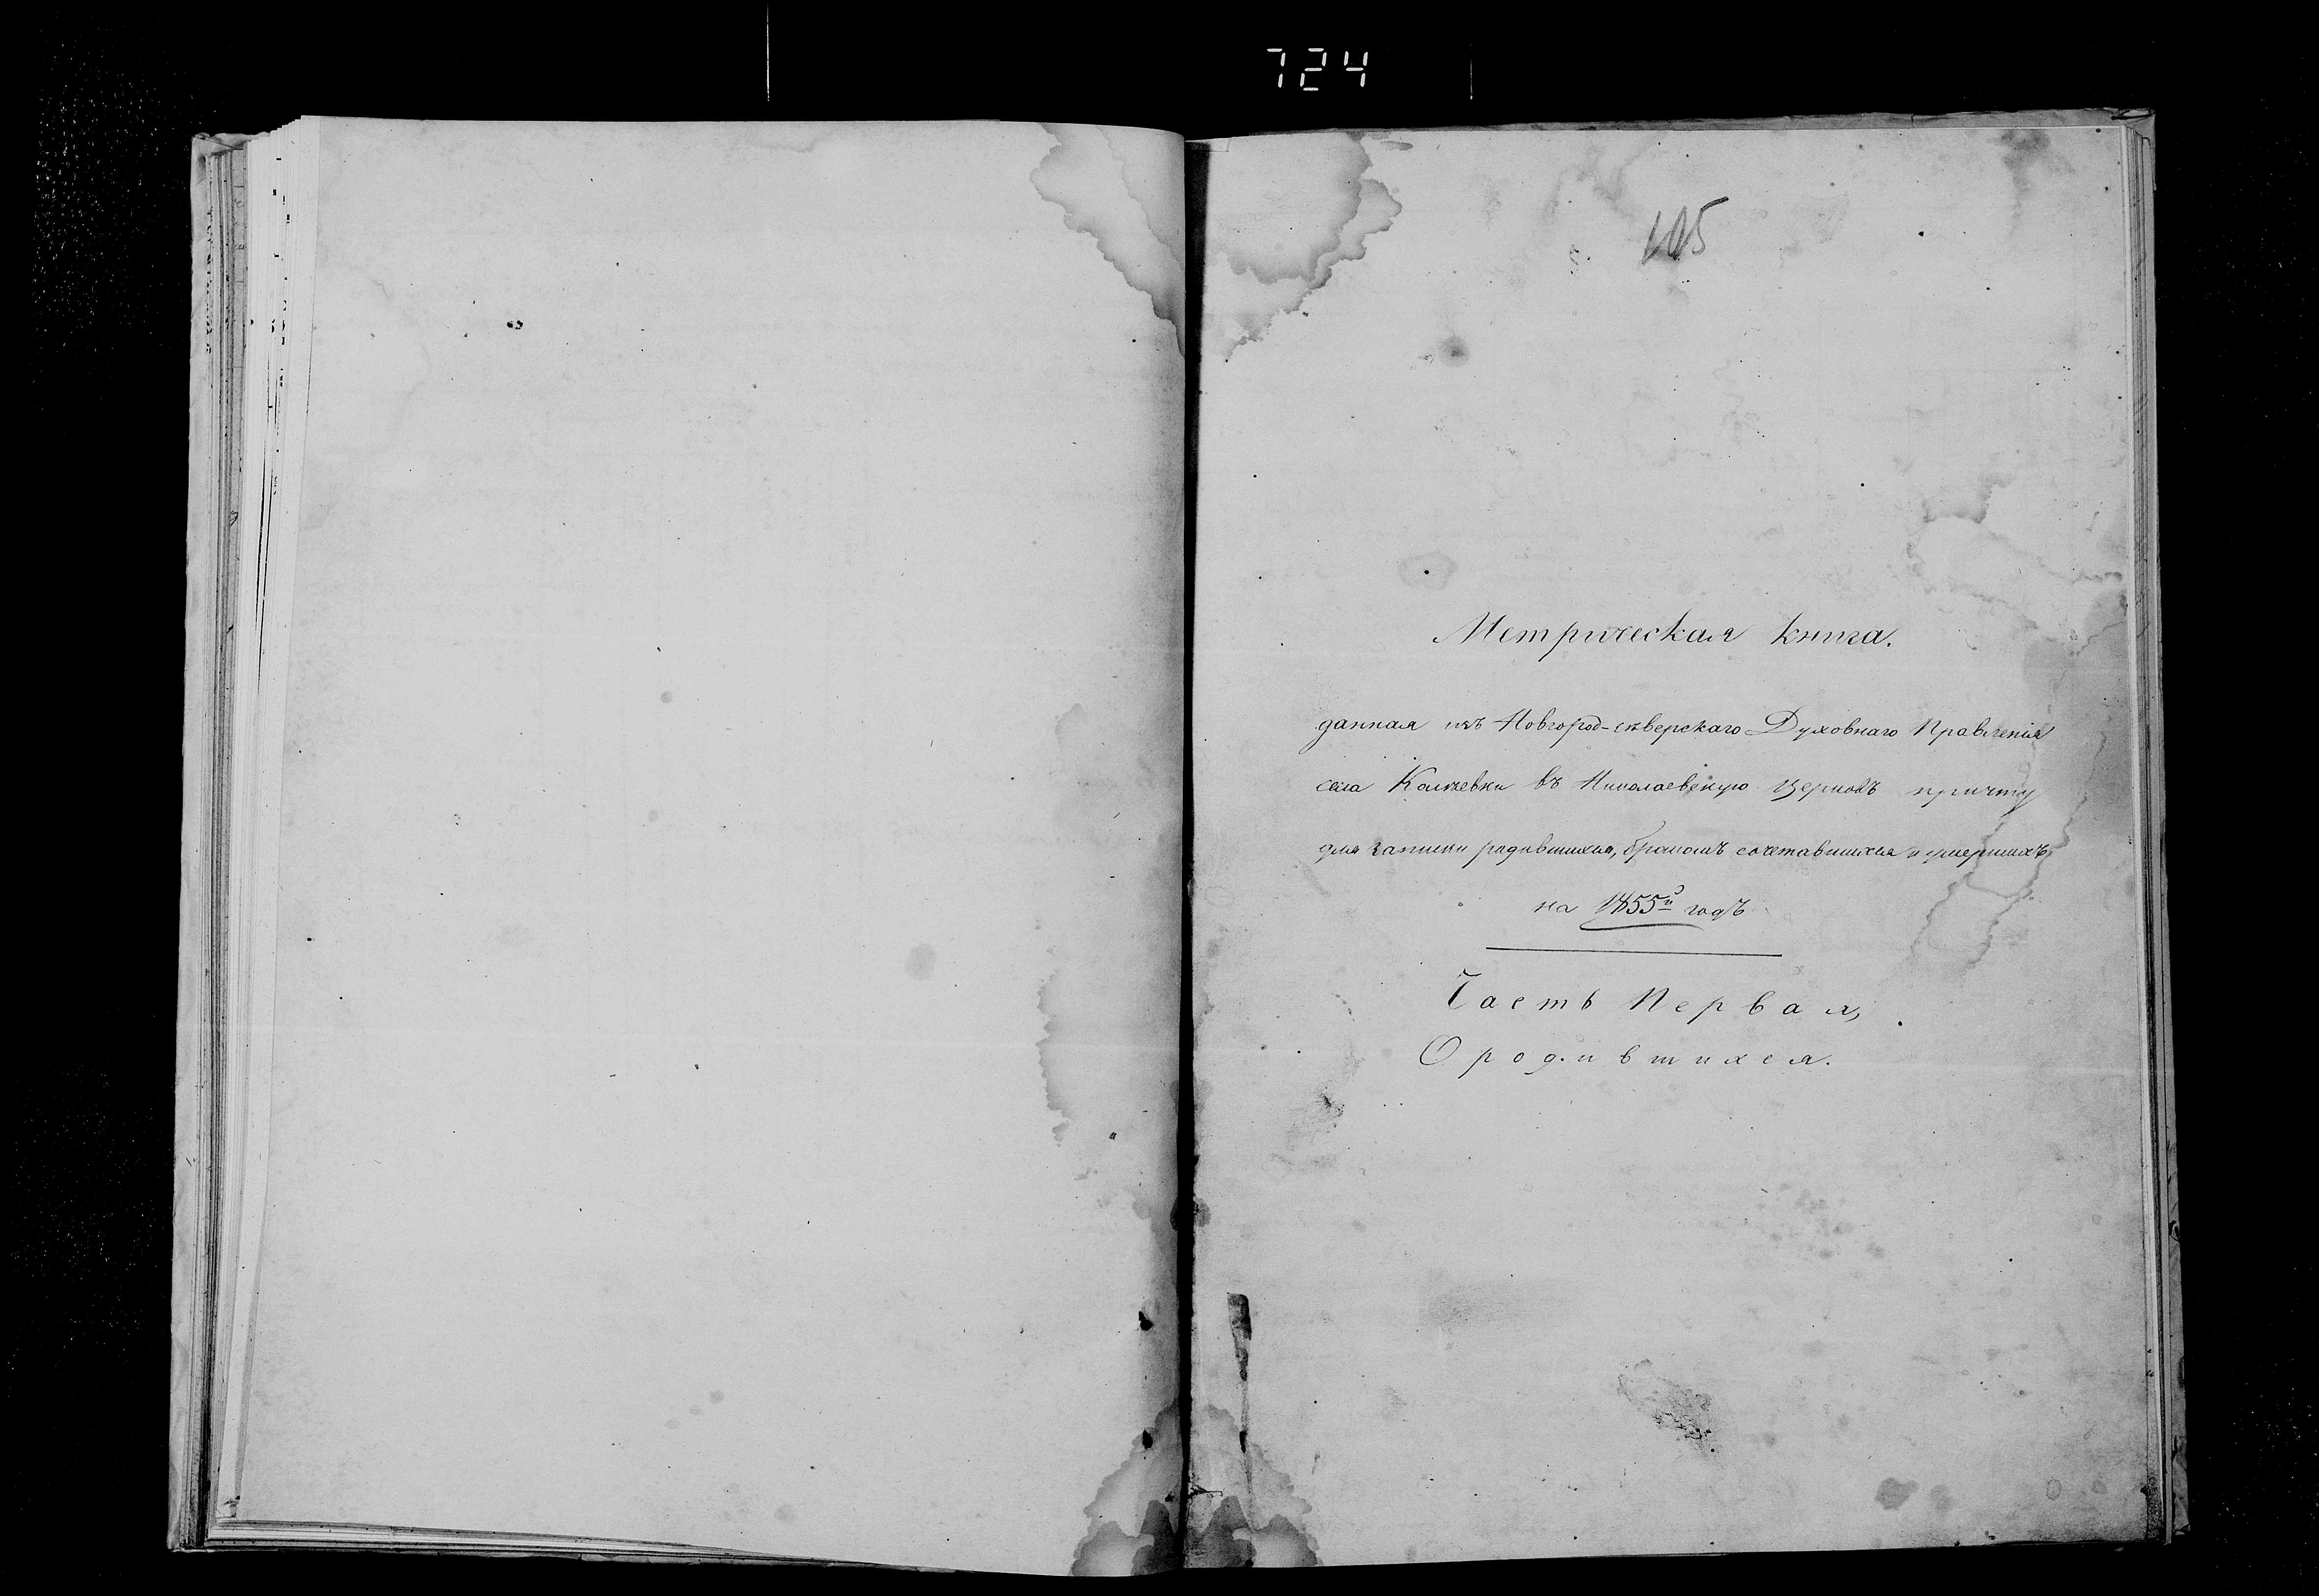 724
105
Метрическая книга.
данная изъ Новгород-сѣверскаго Духовнаго Правленія
села въ Николаевскую церковь причту
для записки родившихся, бракомъ сочетавшихся и умершихъ
на 1855й годъ
Часть Первая,
О родившихся.